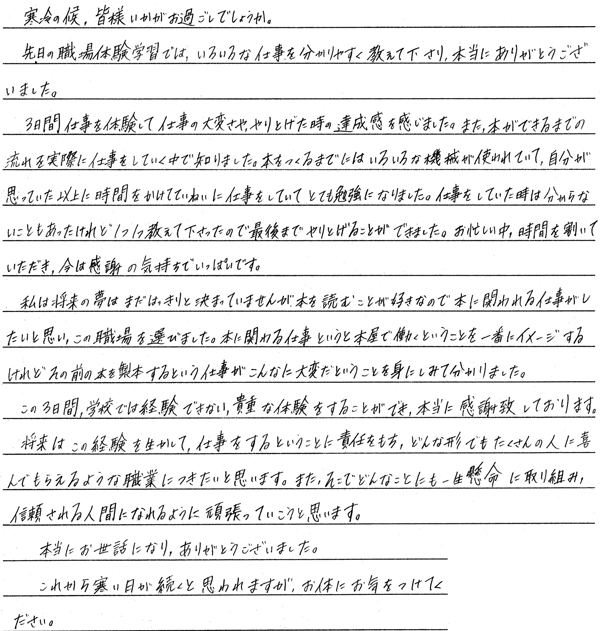 寒冷の候，皆様いかがお過ごしでしょうか。
先日の職場体験学習では，いろいろな仕事を分かりやすく教えて下さり，本当にありがとうござ
いました。
3日間仕事を体験して仕事の大変さや，やりとげた時の達成感を感じました。また，本ができるまでの
流れを実際に仕事をしていく中で知りました。本をつくるまでにはいろいろな機械が使われていて，自分が
思っていた以上に時間をかけてていねいに仕事をしていてとても勉強になりました。仕事をしていた時は分からな
いこともあったけれど1つ1つ教えて下さったので最後までやりとげることができました。お忙しい中，時間を割いて
いただき，今は感謝の気持ちでいっぱいです。
私は将来の夢はまだはっきりと決まっていませんが本を読むことが好きなので本に関われる仕事がし
たいと思い，この職場を選びました。本に関わる仕事というと本屋で働くということを一番にイメージする
けれどその前の本を製本するという仕事がこんなに大変だということを身にしみて分かりました。
この3日間，学校では経験できない，貴重な体験をすることができ，本当に感謝致しております。
将来はこの経験を生かして，仕事をするということに責任をもち，どんな形でもたくさんの人に喜
んでもらえるような職業につきたいと思います。また，そこでどんなことにも一生懸命に取り組み，
信頼される人間になれるように頑張っていこうと思います。
本当にお世話になり，ありがとうございました。
これから寒い日が続くと思われますが，お体にお気をつけてく
ださい。